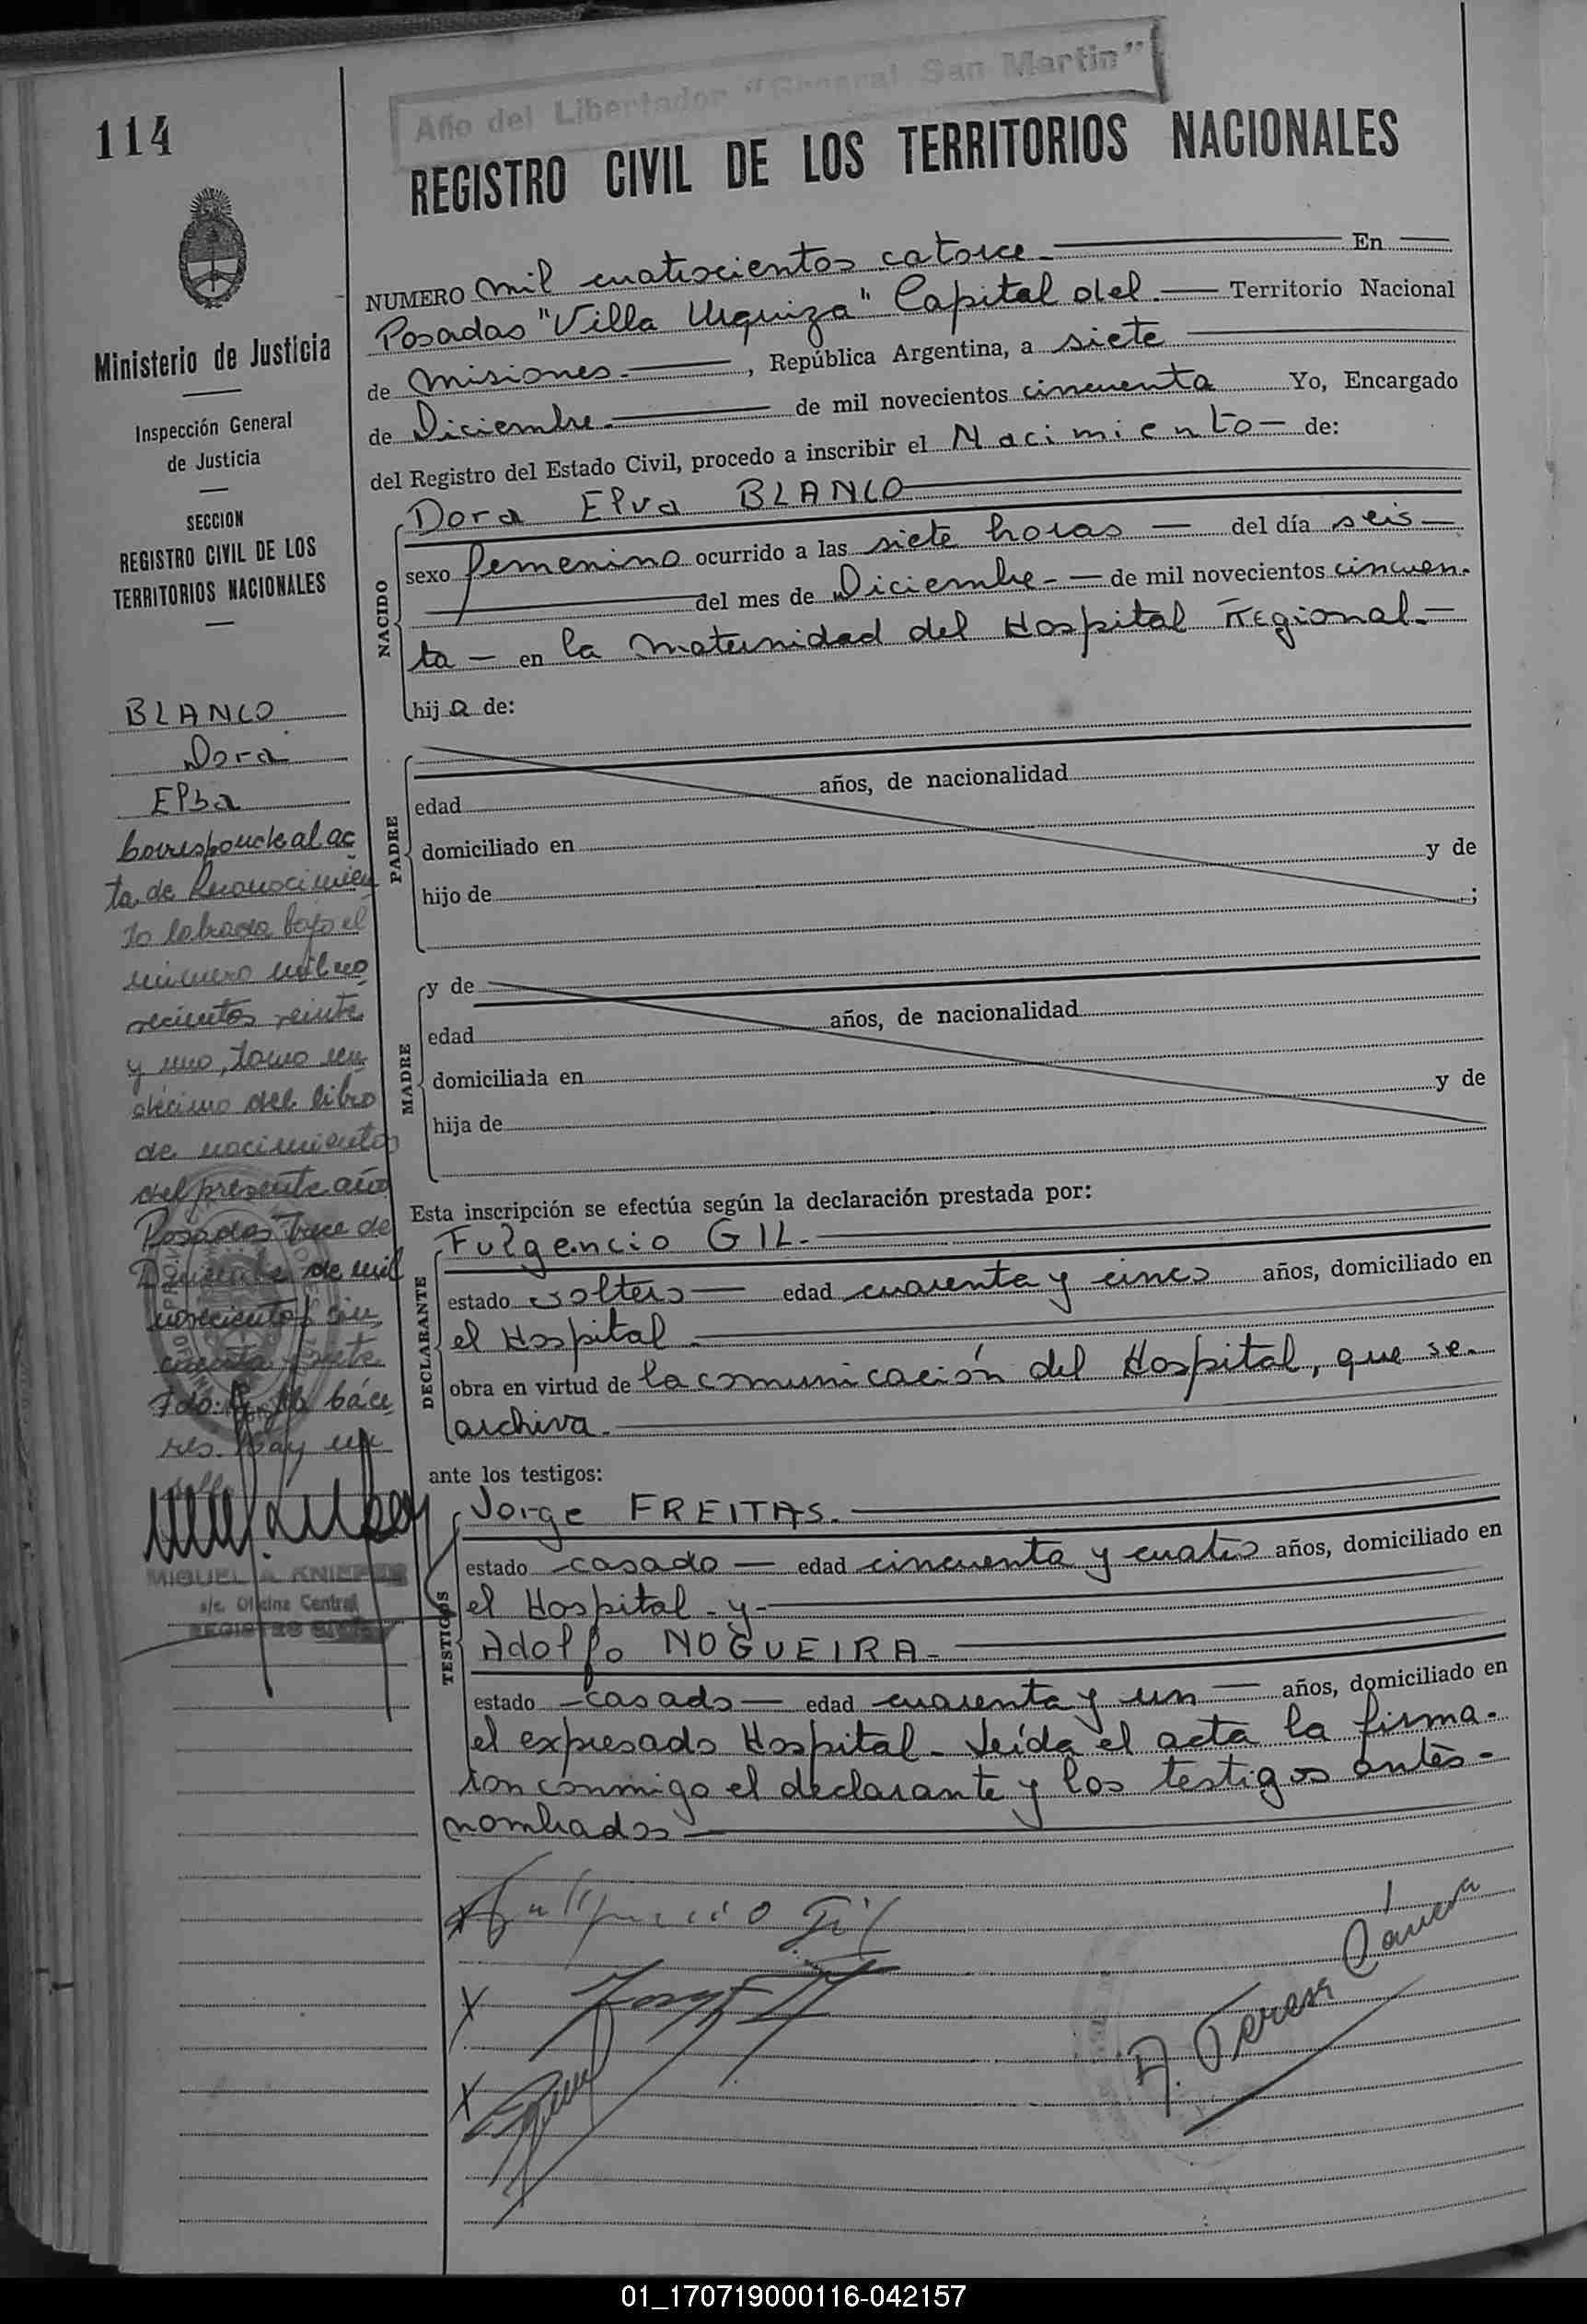 114
Año del Libertador "General San Martin"
REGISTRO CIVIL DE LOS TERRITORIOS NACIONALES
Ministerio de Justicia
Inspección General
de Justicia
SECCION
REGISTRO CIVIL DE LOS
TERRITORIOS NACIONALES
BLANCO
Dora
Elba
Corresponde al ac
ta de Reconocimien
to labrada bajo el
número mil no
vecientos veinte
y uno, tomo un
décimo del libro
de nacimientos
del presente año
Posadas Trece de
de mil
novecientos cin
cuenta y siete
Fdo: báce
res. Hay un
MIGUEL A. KNIEPER
a/c. Oficina Central
REGISTRO CIVIL
NUMERO mil cuatrocientos catorce En
Posadas "Villa Urquiza" Capital del Territorio Nacional
de Misiones, República Argentina, a siete
de Diciembre de mil novecientos cincuenta Yo, Encargado
del Registro del Estado Civil, procedo a inscribir el Nacimiento de:
NACIDO
Dora Elva BLANCO
sexo femenino ocurrido a las siete horas del día seis
del mes de Diciembre de mil novecientos cincuen-
ta en la maternidad del Hospital Regional.
hija de:
PADRE
edad años, de nacionalidad
domiciliado en
hijo de y de
;
MADRE
y de
edad años, de nacionalidad
domiciliada en
hija de y de
Esta inscripción se efectúa según la declaración prestada por:
DECLARANTE
Fulgencio GIL.
estado soltero edad cuarenta y cinco años, domiciliado en
el Hospital
obra en virtud de la comunicación del Hospital, que se
archiva.
ante los testigos:
TESTIGOS
Jorge FREITAS.
estado casado edad cincuenta y cuatro años, domiciliado en
el Hospital - y -
Adolfo NOGUEIRA
estado casado edad cuarenta y un años, domiciliado en
el expresado Hospital - Leída el acta la firma-
ron conmigo el declarante y los testigos antes-
nombrados
x Fulgencio Gil
x
x
A. Teresa
01_170719000116-042157